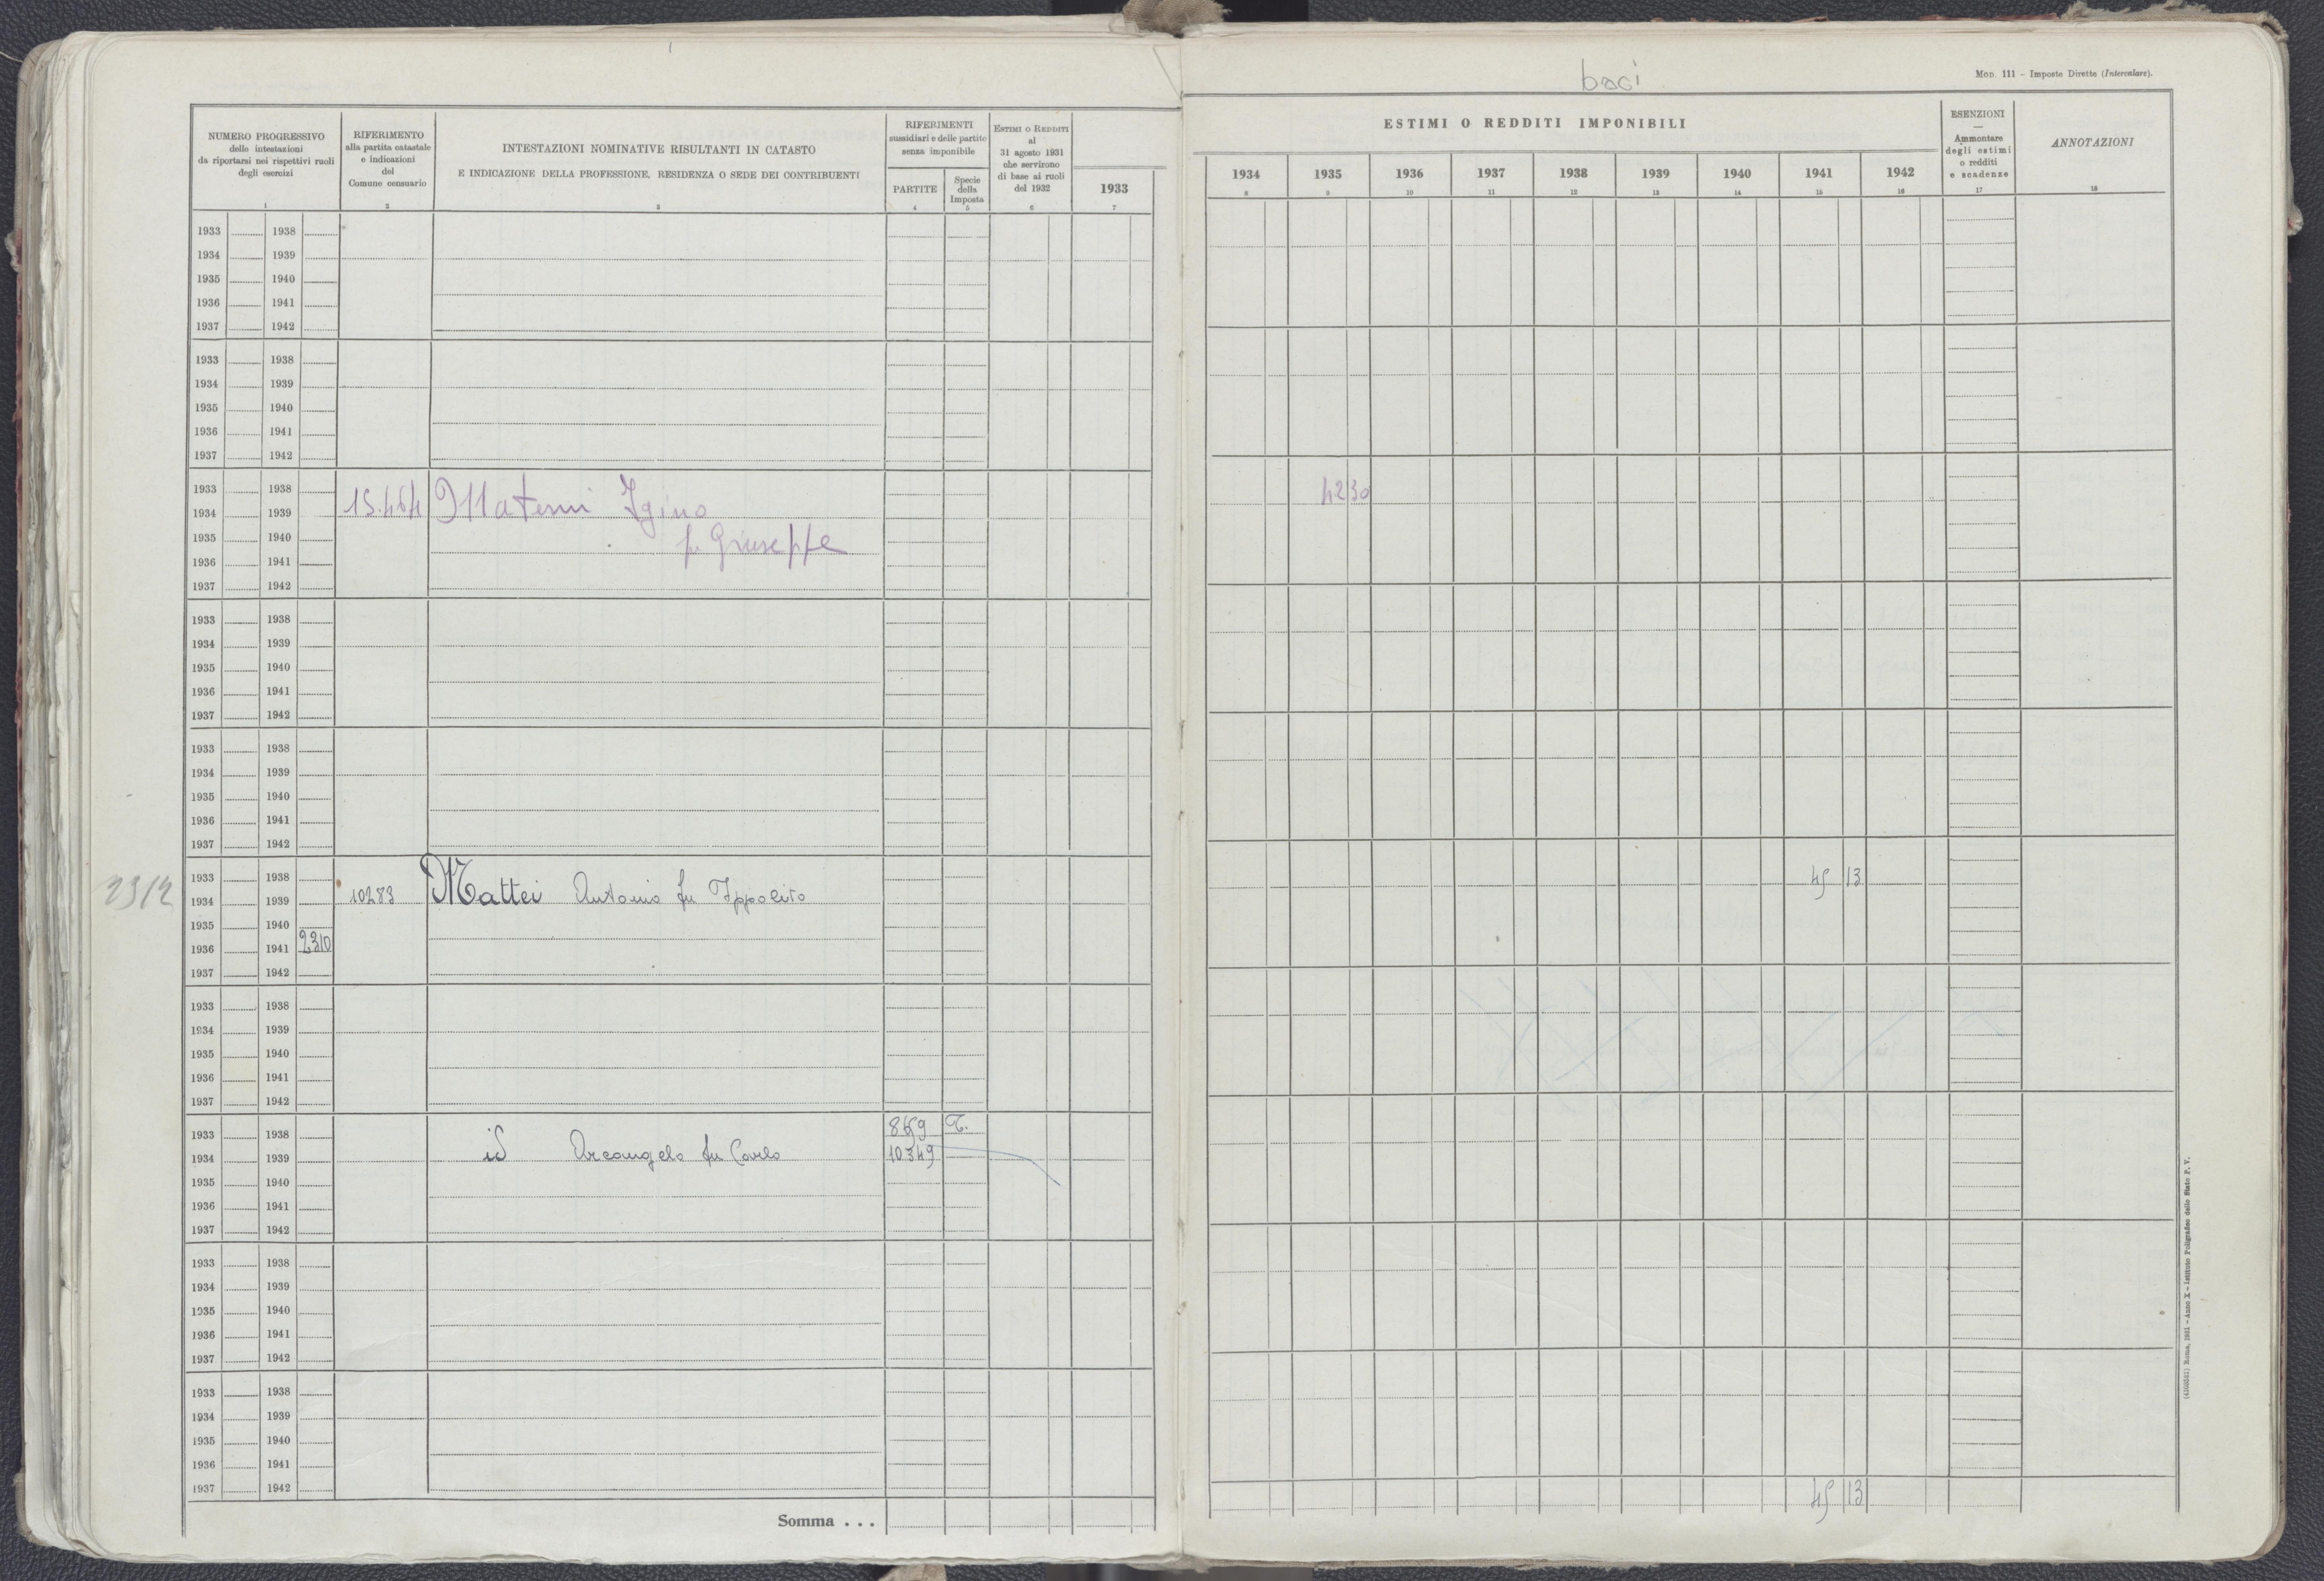 baci
Mod. 111 – Imposte Dirette (Intercalare).
NUMERO PROGRESSIVO
delle intestazioni
da riportarsi nei rispettivi ruoli
degli esercizi
1
RIFERIMENTO
alla partita catastale
e indicazioni
del
Comune censuario
2
INTESTAZIONI NOMINATIVE RISULTANTI IN CATASTO
E INDICAZIONE DELLA PROFESSIONE, RESIDENZA O SEDE DEI CONTRIBUENTI
3
RIFERIMENTI
sussidiari e delle partite
senza imponibile
PARTITE
4
Specie
della
Imposta
5
ESTIMI O REDDITI
al
31 agosto 1931
che servirono
di base ai ruoli
del 1932
6
1933
7
ESTIMI O REDDITI IMPONIBILI
1934 1935 1936 1937 1938 1939 1940 1941 1942
8 9 10 11 12 13 14 15 16
ESENZIONI
—
Ammontare
degli estimi
o redditi
e scadenze
17
ANNOTAZIONI
18
1933 1938
1934 1939
1935 1940
1936 1941
1937 1942
1933 1938
1934 1939
1935 1940
1936 1941
1937 1942
1933 1938
1934 1939 15.464 Materni Igino 42 30
1935 1940 fu Giuseppe
1936 1941
1937 1942
1933 1938
1934 1939
1935 1940
1936 1941
1937 1942
1933 1938
1934 1939
1935 1940
1936 1941
1937 1942
1933 1938
2312 1934 1939 10283 Mattei Antonio fu Ippolito 45 13
1935 1940
1936 1941 2310
1937 1942
1933 1938
1934 1939
1935 1940
1936 1941
1937 1942
1933 1938 T.
1934 1939 id Arcangelo fu Carlo 10349
1935 1940
1936 1941
1937 1942
1933 1938
1934 1939
1935 1940
1936 1941
1937 1942
1933 1938
1934 1939
1935 1940
1936 1941
1937 1942
Somma . . . 45 13
(4100532) Roma, 1931 – Anno X – Istituto Poligrafico dello Stato P. V.